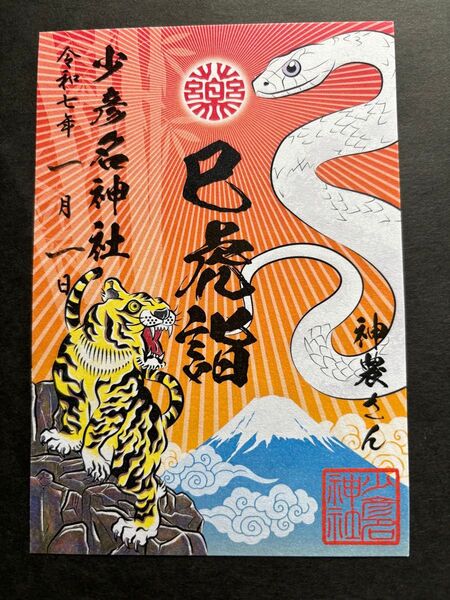 少彦名神社
令和七年一月一日
巳虎詣
神農さん
少彦名
神社